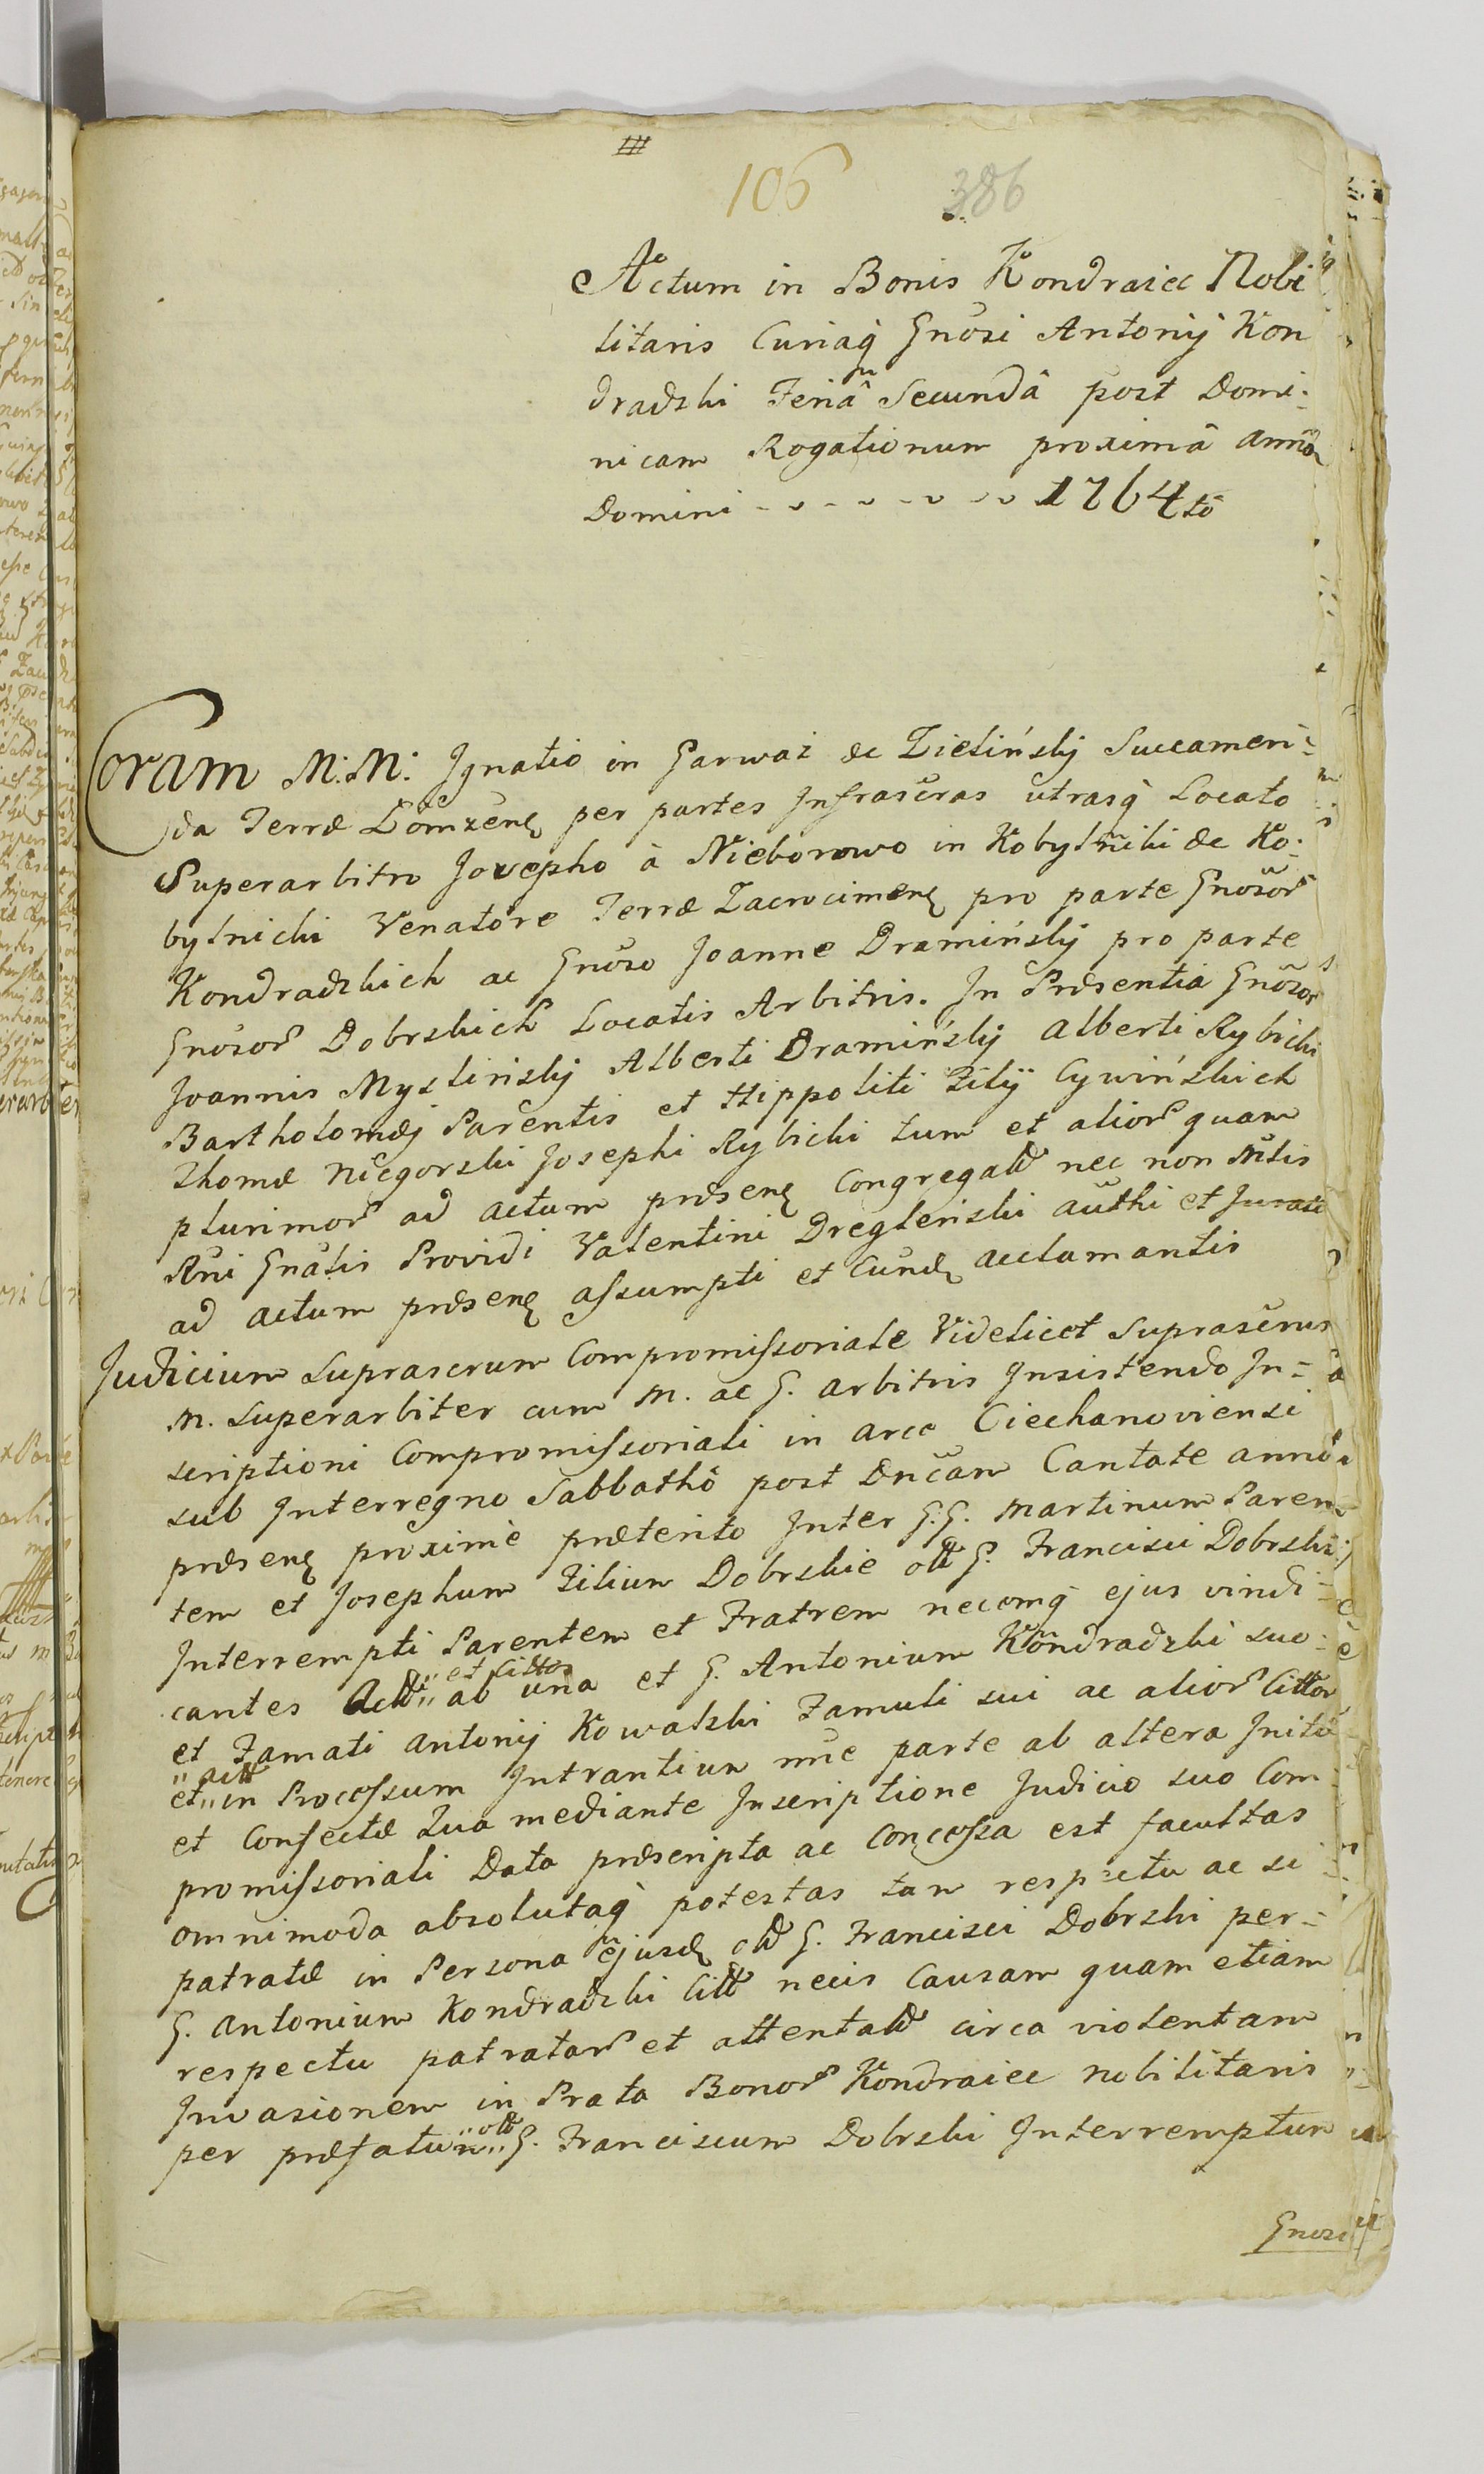 106 386
Actum in Bonis Kondraiec Nobi
litaris Curiaq́ Gnosi Antonij Kon
dradzki Feriâ Secundâ post Domi:
nicam Rogationum proximâ anno
Domini - - - - - - 1764to
Coram M: M: Ignatio in Garwaz de Zielińskij Succameri:
da Terræ Łomzens per partes Infrascras utrasq́ Locato
Superarbitro Josepho à Nieborowo in Kobylniki de Ko:
bylnicki Venatore Terræ Zacrocimens pro parte Gnosor
Kondradzkich ac Gnoso Joanne Dramińskij pro parte
Gnosor Dobrskich Locatis Arbitris. In Præsentia Gnosor
Joannis Myslińskij Alberti Dramińskij Alberti Rybicki
Bartholomæj Parentis et Hippoliti Filÿ Cywińskich
Thomæ Niegorski Josephi Rybicki tum et alior quam
plurimor ad actum præsens Congregat nec non Mlis
Rni Gnalis Providi Valentini Dreglerski authi et Jurati
ad actum præsens assumpti et Eund acclamantis
Judicium suprascrum Compromissoriale Videlicet suprascrus
M. Superarbiter cum M. ac G. Arbitris Insistendo In:
scriptioni Compromissoriali in Arce Ciechanoviensi
sub Interregno Sabbathô post Dncam Cantate annô
præsens proximè præterito Inter G: G. Martinum Paren:
tem et Josephum Filium Dobrskie olt G. Francisci Dobrski
Interrempti Parentem et Fratrem necemq́ ejus vindi:
cantes Act " et Cittos " ab una et G. Antonium Kondradzki suo:
et Famati Antonij Kowalski Famuli sui ac alior Cittor
et " act " in Processum Intrantium nne parte ab altera Initæ
et Confectæ Qua mediante Inscriptione Judicio suo Com:
promissoriali Data præscripta ac Concessa est facultas
omnimoda absolutaq́ potestas tam respectu ac si
patratæ in Persona ejusd olt G. Francisci Dobrski per:
G. Antonium Kondradzki Citt necis Causam quam etiam
respectu patrator et attentat circa violentam
Invasionem in Prata Bonor Kondraiec nobilitaris
per præfatum " olt " G. Franciscum Dobrski Interremptum
Gnosi